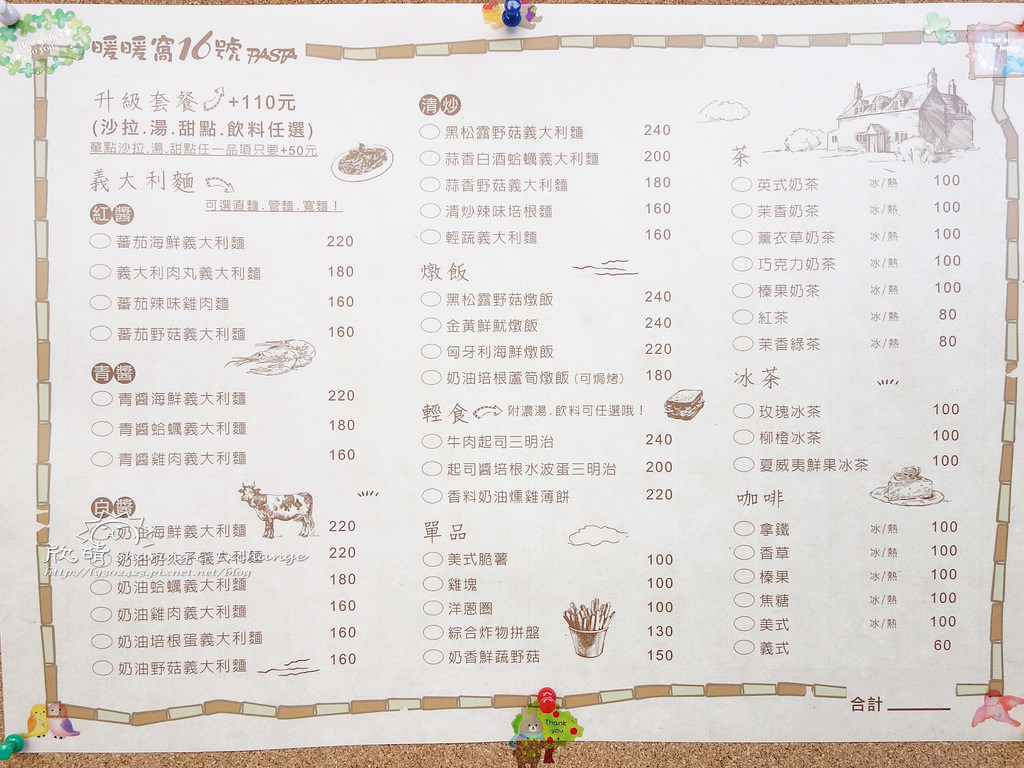 暖暖窩16號PASTA
升級套餐 +110元
(沙拉.湯.甜點.飲料任選)
單點沙拉.湯.甜點任一品項只要+50元
義大利麵
可選直麵.管麵.寬麵！
紅醬
蕃茄海鮮義大利麵 220
義大利肉丸義大利麵 180
蕃茄辣味雞肉麵 160
蕃茄野菇義大利麵 160
青醬
青醬海鮮義大利麵 220
青醬蛤蠣義大利麵 180
青醬雞肉義大利麵 160
白醬
奶油海鮮義大利麵 220
義大利麵 220
奶油蛤蠣義大利麵 180
奶油雞肉義大利麵 160
奶油培根蛋義大利麵 160
奶油野菇義大利麵 160
清炒
黑松露野菇義大利麵 240
蒜香白酒蛤蠣義大利麵 200
蒜香野菇義大利麵 180
清炒辣味培根麵 160
輕蔬義大利麵 160
燉飯
黑松露野菇燉飯 240
金黃鮮魷燉飯 240
匈牙利海鮮燉飯 220
奶油培根蘆筍燉飯(可焗烤) 180
輕食 附濃湯.飲料可任選哦！
牛肉起司三明治 240
起司醬培根水波蛋三明治 200
香料奶油燻雞薄餅 220
單品
美式脆薯 100
雞塊 100
洋蔥圈 100
綜合炸物拼盤 130
奶香鮮蔬野菇 150
茶
英式奶茶 冰/熱 100
茉香奶茶 冰/熱 100
薰衣草奶茶 冰/熱 100
巧克力奶茶 冰/熱 100
榛果奶茶 冰/熱 100
紅茶 冰/熱 80
茉香綠茶 冰/熱 80
冰茶
玫瑰冰茶 100
柳橙冰茶 100
夏威夷鮮果冰茶 100
咖啡
拿鐵 冰/熱 100
香草 冰/熱 100
榛果 冰/熱 100
焦糖 冰/熱 100
美式 冰/熱 100
義式 60
合計
Thank you
欣晴